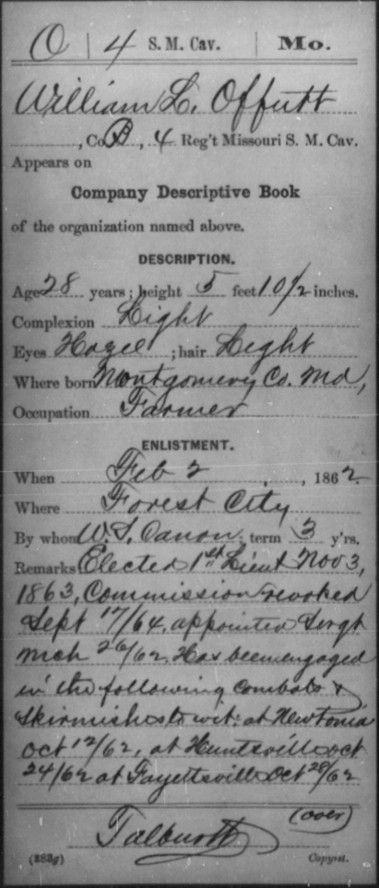 O | 4 S. M. Cav. | Mo.
William L. Offutt
, Co. B, 4 Reg't Missouri S. M. Cav.
Appears on
Company Descriptive Book
of the organization named above.
DESCRIPTION.
Age 28 years; height 5 feet 10 1/2 inches.
Complexion Light
Eyes Hazel; hair Light
Where born Montgomery Co. Md,
Occupation Farmer
ENLISTMENT.
When Feb 2, 1862.
Where Forest City
By whom W. S. Canon; term 3 y'rs.
Remarks Elected 1st Lieut Nov 3,
1863, Commission revoked
Sept 17/64, appointed Sergt
Mch 26/62. Has been engaged
in the following combats &
Skirmishes to wit: at Newtonia
Oct 12/62, at Huntsville Oct
24/62 at Fayettsville Oct 28/62
(over)
Talbutt
(383g) Copyist.